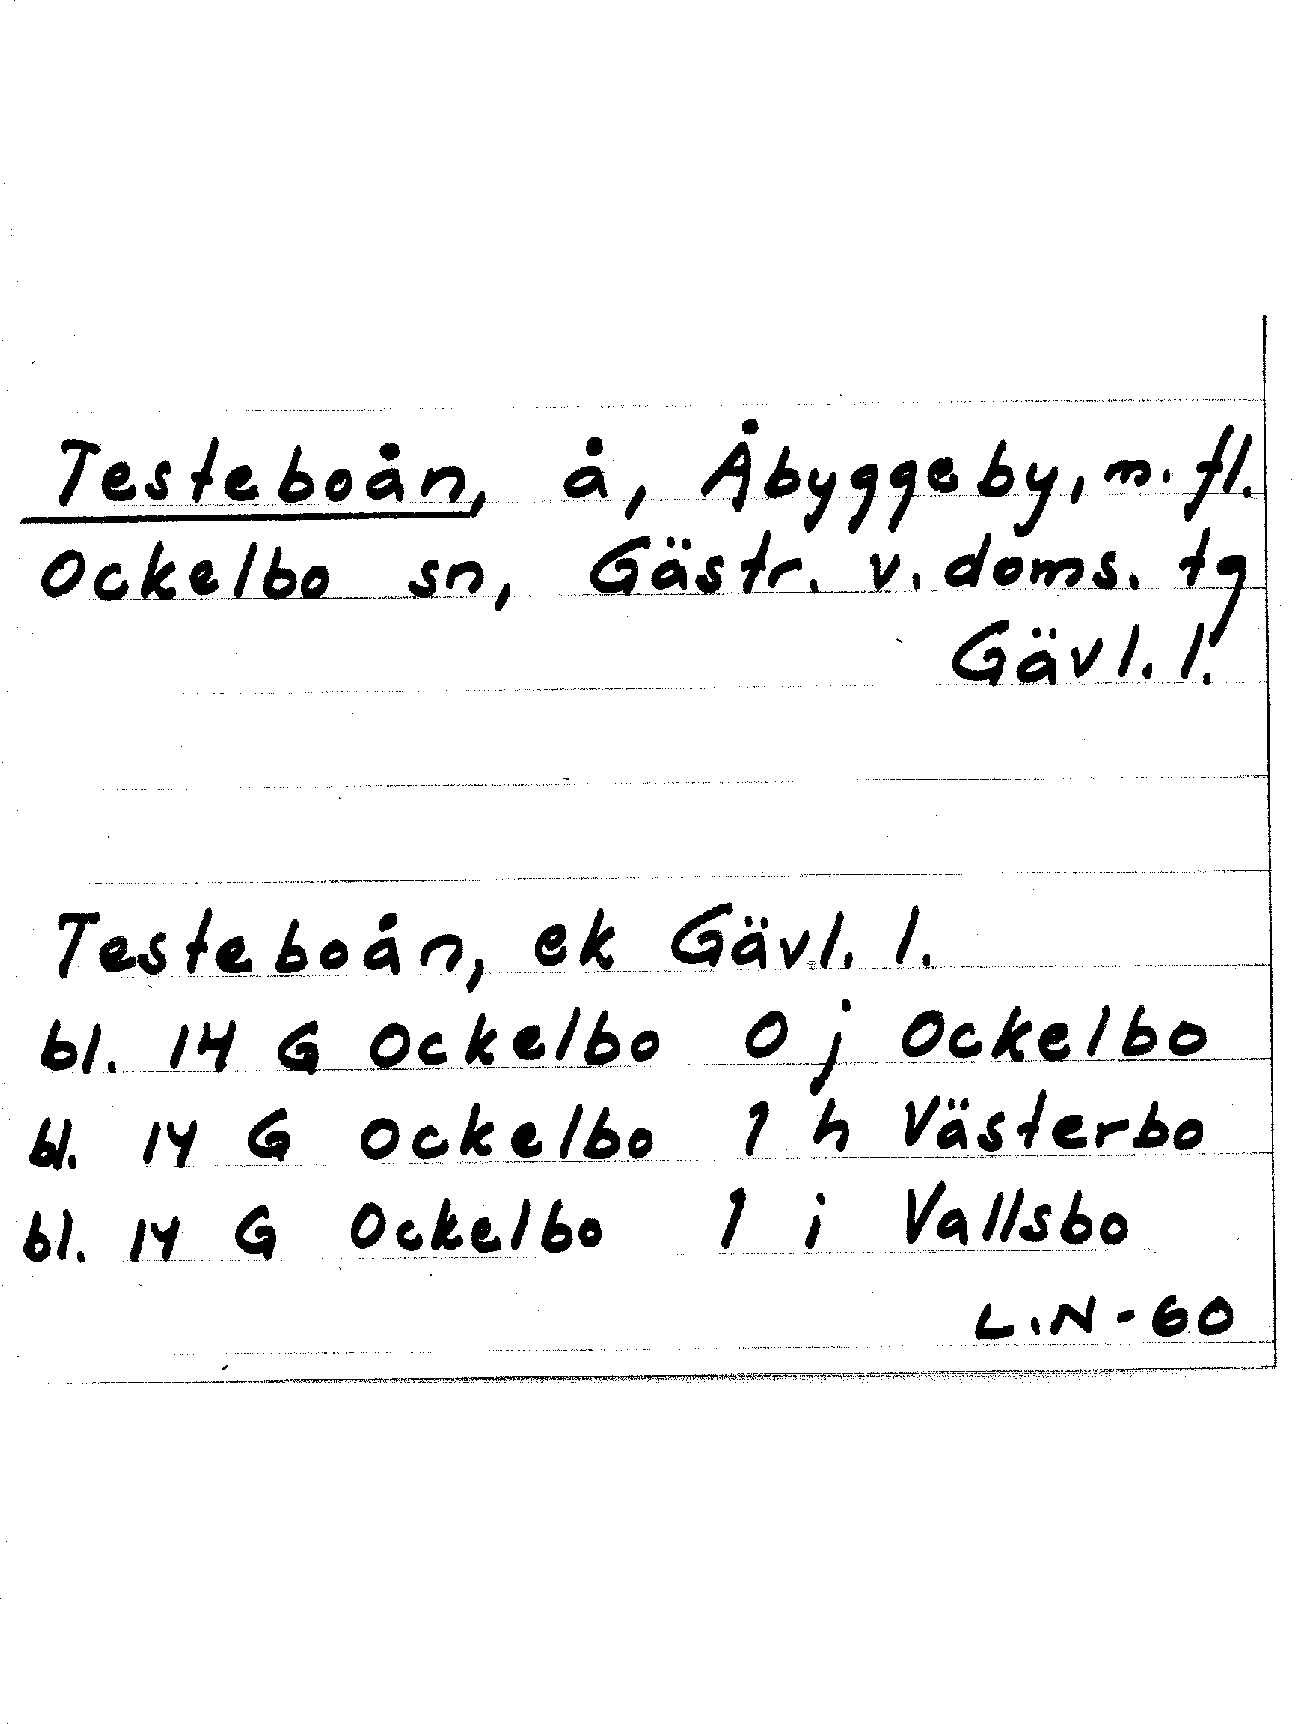 Testeboån, å, Åbyggeby, m. fl.
Ockelbo sn, Gästr. v. doms. tg
Gävl. l.
Testeboån, ek Gävl. l.
bl. 14 G Ockelbo 0 j Ockelbo
bl. 14 G Ockelbo 1 h Västerbo
bl. 14 G Ockelbo 1 i Vallsbo
L.N-60